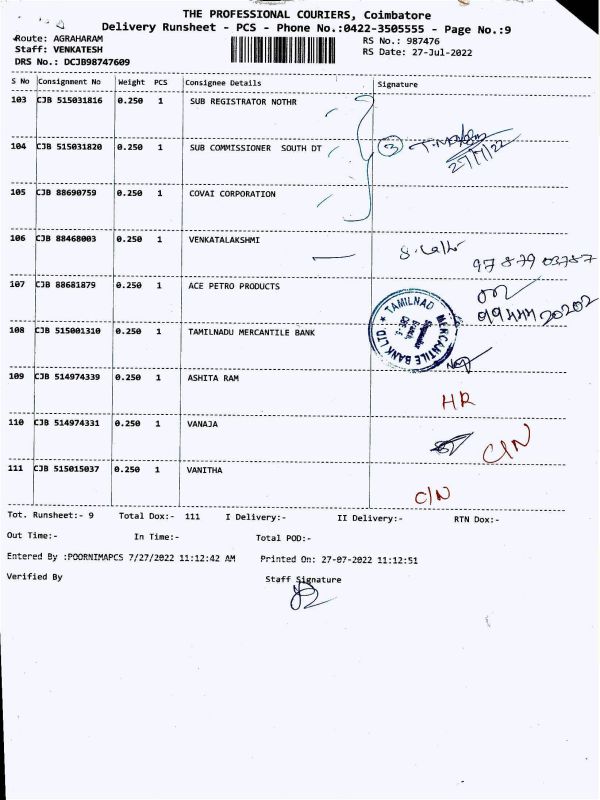 THE PROFESSIONAL COURIERS, Coimbatore
Delivery Runsheet - PCS - Phone No.:0422-3505555 - Page No.:9
Route: AGRAHARAM
RS No.: 987476
Staff: VENKATESH
RS Date: 27-Jul-2022
DRS No.: DCJB98747609
S No Consignment No Weight PCS Consignee Details Signature
103 CJB 515031816 0.250 1 SUB REGISTRATOR NOTHR
104 CJB 515031820 0.250 1 SUB COMMISSIONER SOUTH DT 3
27/7/22
105 CJB 88690759 0.250 1 COVAI CORPORATION
106 CJB 88468003 0.250 1 VENKATALAKSHMI
97 879 03787
107 CJB 88681879 0.250 1 ACE PETRO PRODUCTS
99444 20202
TAMILNAD MERCANTILE BANK LTD
108 CJB 515001310 0.250 1 TAMILNADU MERCANTILE BANK
109 CJB 514974339 0.250 1 ASHITA RAM
HR
110 CJB 514974331 0.250 1 VANAJA
C/N
111 CJB 515015037 0.250 1 VANITHA
C/N
Tot. Runsheet:- 9 Total Dox:- 111 I Delivery:- II Delivery:- RTN Dox:-
Out Time:- In Time:- Total POD:-
Entered By :POORNIMAPCS 7/27/2022 11:12:42 AM Printed On: 27-07-2022 11:12:51
Verified By Staff Signature